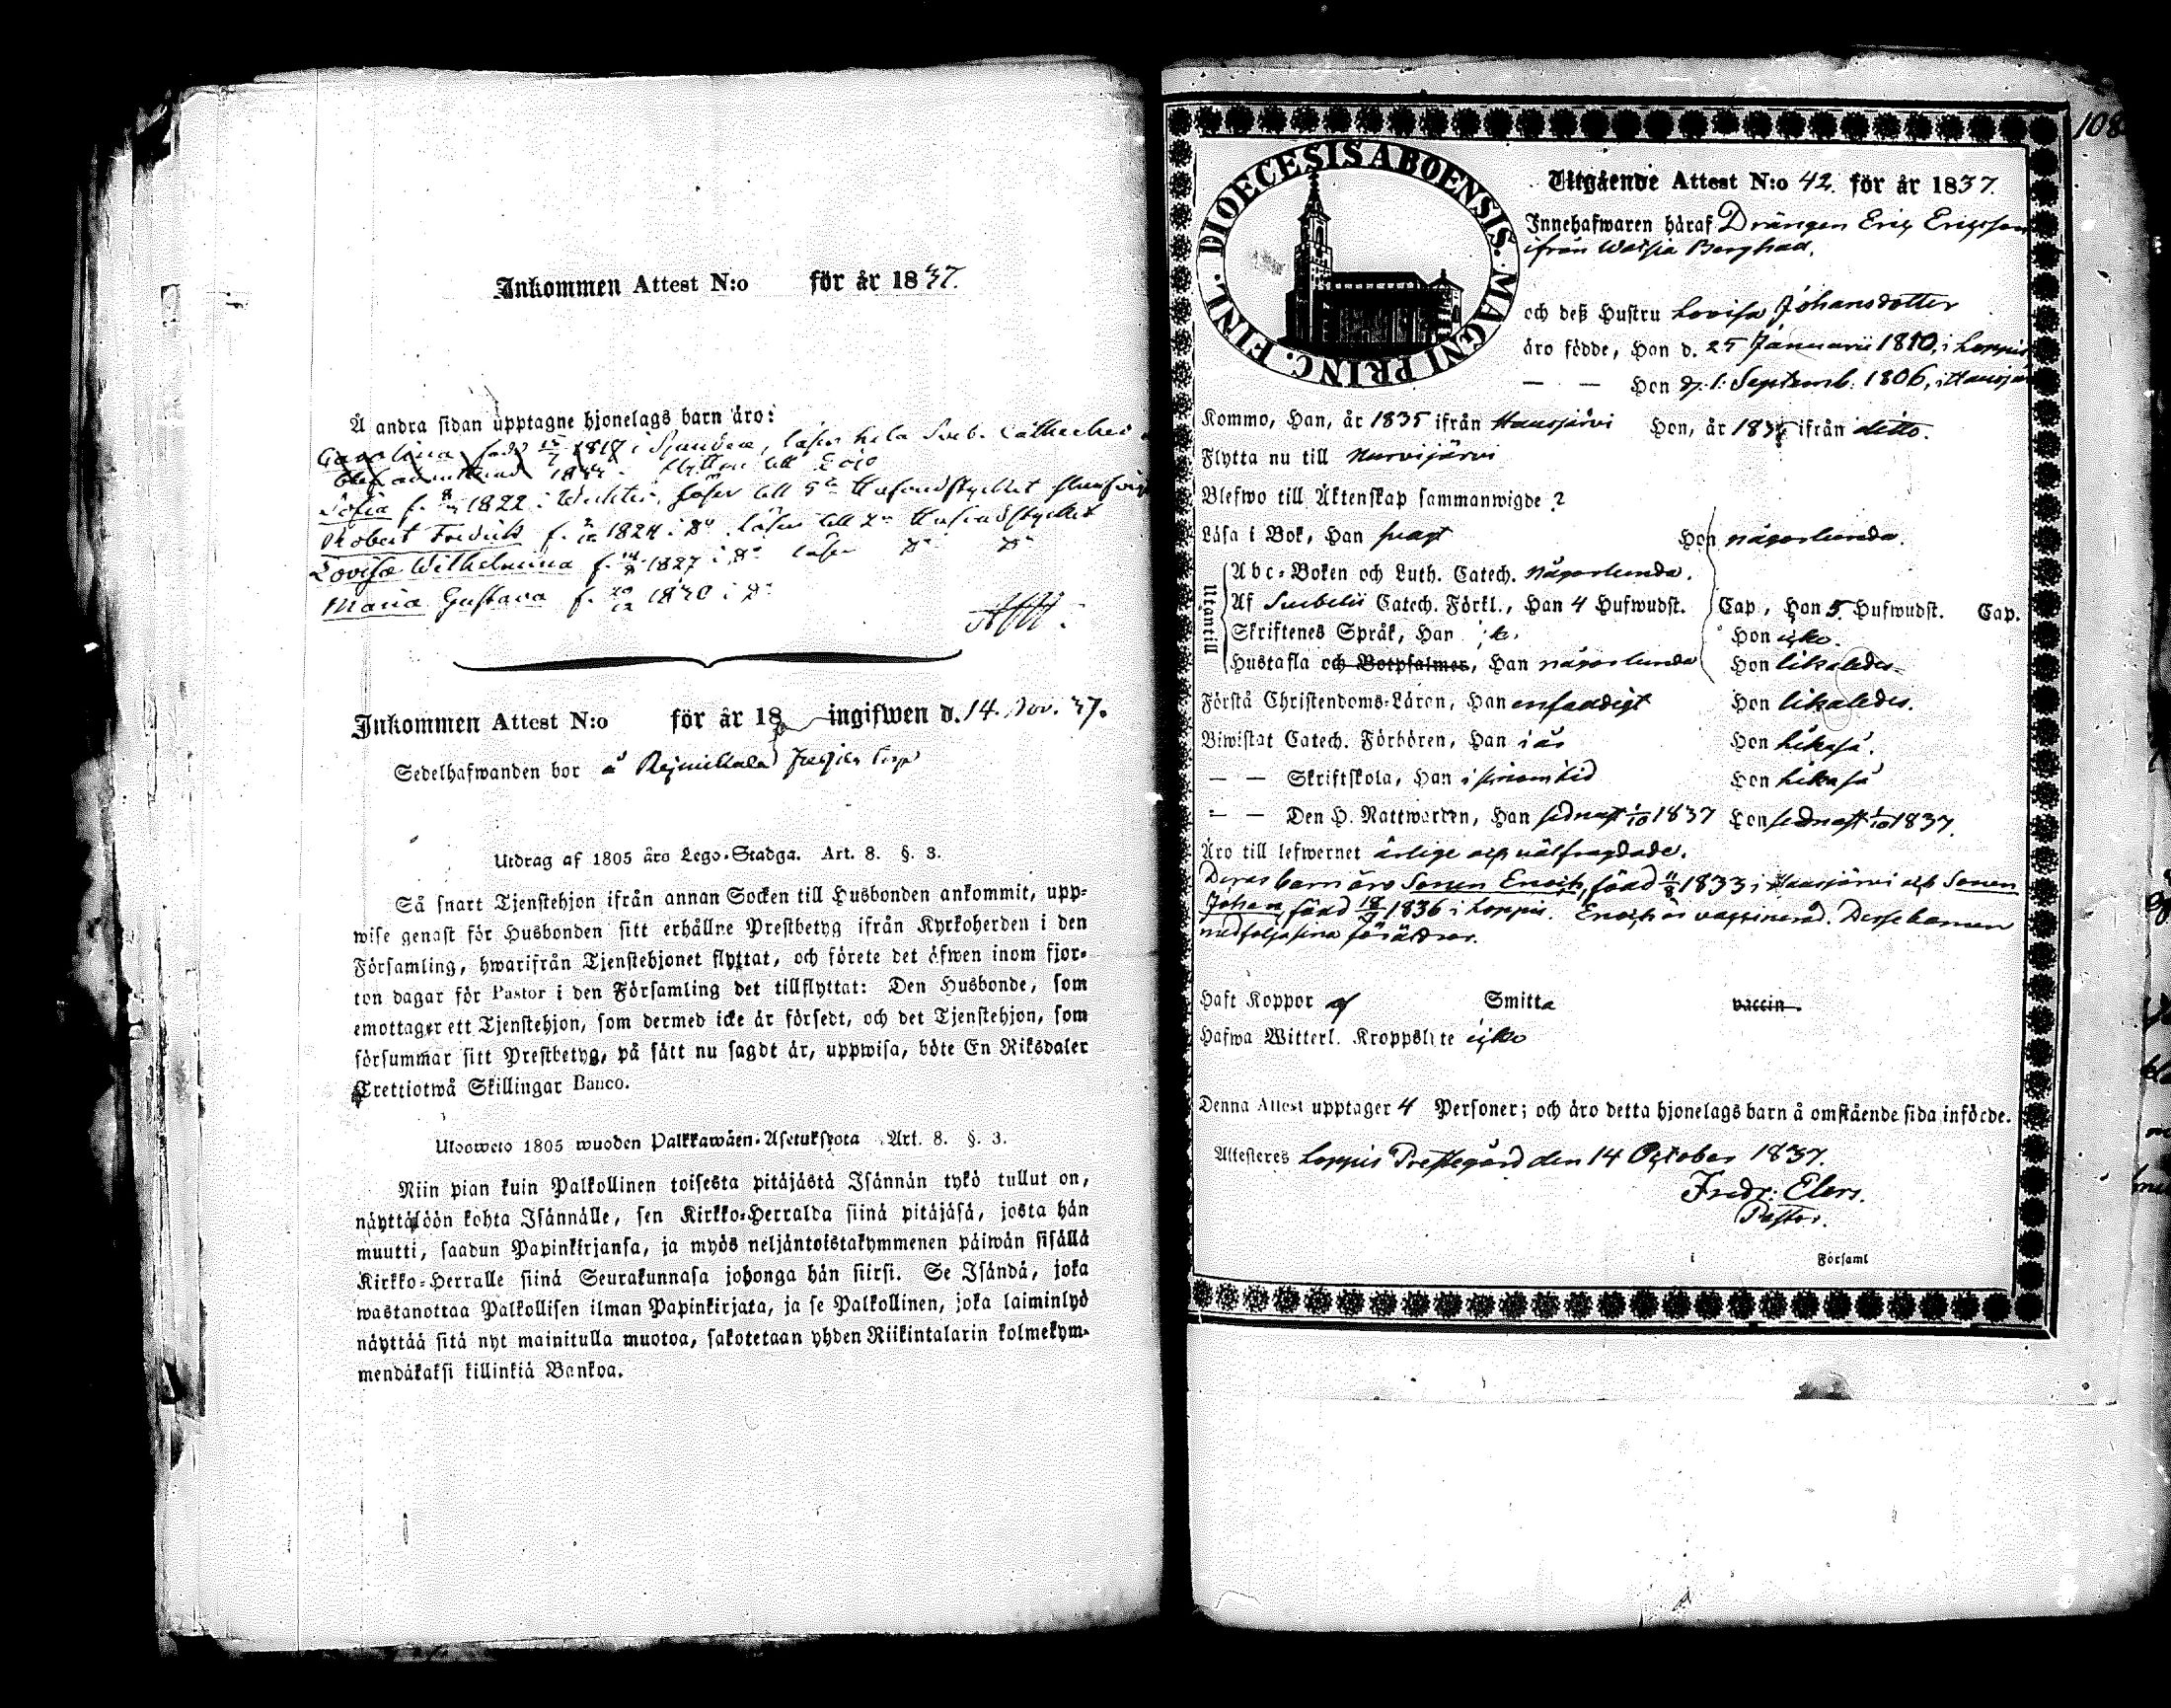 Inkommen Attest N:o för år 1837.
Å andra sidan upptagne hjonelags barn äro:
Carolina född 1817 i Sjundeå, läser hela Sveb. Catheches
flyttar till
Sofia f. 1822 i Wichtis, läser till 5te Hufvudstycket
Robert Fredrik f. 1824 i do läser till Hufvudstycket
Lovisa Wilhelmina f. 1827 i do läser do do
Maria Gustava f. 1830 i do
Inkommen Attest N:o för år 18 ingifwen d. 14. Nov. 37.
Sedelhafwanden bor å
Utdrag af 1805 års Lego-Stadga. Art. 8. §. 3.
Så snart Tjenstehjon ifrån annan Socken till Husbonden ankommit, upp-
wise genast för Husbonden sitt erhållne Prestbetyg ifrån Kyrkoherden i den
Församling, hwarifrån Tjenstehjonet flyttat, och förete det äfwen inom fjor-
ton dagar för Pastor i den Församling det tillflyttat: Den Husbonde, som
emottager ett Tjenstehjon, som dermed icke är försedt, och det Tjenstehjon, som
försummar sitt Prestbetyg, på sätt nu sagdt är, uppwisa, böte En Riksdaler
Trettiotwå Skillingar Banco.
Ulosweto 1805 wuoden Palkkawäen-Asetuksesta Art. 8. §. 3.
Niin pian kuin Palkollinen toisesta pitäjästä Isännän tykö tullut on,
näyttäköön kohta Isännälle, sen Kirkko-Herralda siinä pitäjäsä, josta hän
muutti, saadun Papinkirjansa, ja myös neljäntoistakymmenen päiwän sisällä
Kirkko-Herralle siinä Seurakunnasa johonga hän siirsi. Se Isändä, joka
wastanottaa Palkollisen ilman Papinkirjata, ja se Palkollinen, joka laiminlyö
näyttää sitä nyt mainitulla muotoa, sakotetaan yhden Riikintalarin kolmekym-
mendäkaksi killinkiä Bankoa.
108
DIOECESIS ABOENSIS. MAGNI PRINC. FINL.
Utgående Attest N:o 42. för år 1837.
Innehafwaren häraf Drängen Eric Ericsson
ifrån Berghad.
och deß Hustru Lovisa Johansdotter
äro födde, Han d. 25 Januarii 1810, i Loppis
— — Hon d. 1. Septemb. 1806, i Hausjärvi
Kommo, Han, år 1835 ifrån Hausjärvi Hon, år ifrån ditto.
Flytta nu till Nurmijärvi
Blefwo till Äktenskap sammanwigde ?
Läsa i Bok, Han svagt Hon någorlunda.
Utantill
Abc-Boken och Luth. Catech. någorlunda.
Af Svebelii Catech. Förkl., Han 4 Hufwudst. Cap., Hon 5. Hufwudst. Cap.
Skriftenes Språk, Han Hon icke.
Hustafla och Botpsalmer, Han någorlunda Hon likaledes
Förstå Christendoms-Läran, Han enfaldigt Hon likaledes.
Biwistat Catech. Förhören, Han i år Hon likaså.
— — Skriftskola, Han i sinom tid Hon likaså
— — Den H. Nattwarden, Han sednast 1/10 1837 Hon sednast 1/10 1837.
Äro till lefwernet ärlige och välfrägdade.
Deras barn äro Sonen Enoch, född 11/8 1833 i Hausjärvi och Sonen
Johan, född 1836 i Loppis. Enoch är vaccinerad. Desse barnen
medfölja sina föräldrar.
Haft Koppor af Smitta vaccin.
Hafwa Witterl. Kroppslyte icke
Denna Attest upptager 4 Personer; och äro detta hjonelags barn å omstående sida införde.
Attesteres Loppis Prestegård den 14 October 1837.
Fredr. Elers.
Pastor.
i Församl